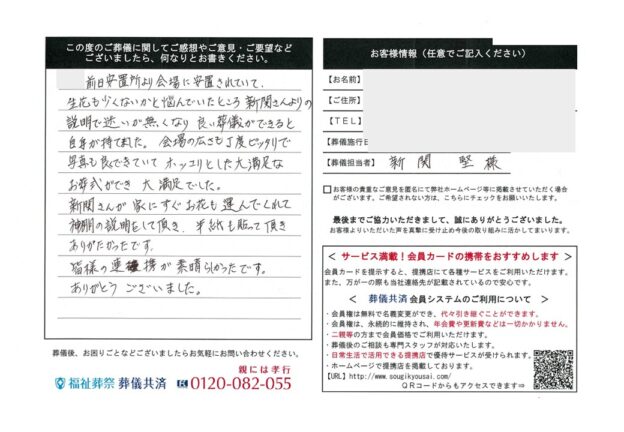 この度のご葬儀に関してご感想やご意見・ご要望など
ございましたら、何なりとお書きください。
前日安置所より会場に安置されていて、
生花も少くないかと悩んでいたところ新関さんよりの
説明で迷いが無くなり良い葬儀ができると
自身が持て来れた。会場の広さも丁度ピッタリで
写真も良くできていてホッコリとした大満足な
お葬式ができ大満足でした。
新関さんが家にすぐお花も選んでくれて
神棚の説明をして頂き、半紙も貼って頂き
ありがたかったです。
皆様の連携が素晴らしかったです。
ありがとうございました。
葬儀後、お困りごとなどございましたらお気軽にお問い合わせください。
親には孝行
福祉葬祭 葬儀共済 0120-082-055
お客様情報（任意でご記入ください）
【お名前】
【ご住所】
【TEL】
【葬儀施行日
【葬儀担当者】 新関 堅様
お客様の貴重なご意見を匿名にて弊社ホームページ等に掲載させていただく場合
がございます。ご希望されない方は、こちらにチェックをお願いします。
最後までご協力いただきまして、誠にありがとうございました。
お客様よりいただいた声を真摯に受け止め今後の取り組みに活かしてまいります。
< サービス満載！会員カードの携帯をおすすめします >
会員カードを提示すると、提携店にて各種サービスをご利用いただけます。
また、万が一の際も当社連絡先が記載されているので安心です。
< 葬儀共済 会員システムのご利用について >
・会員権は無料で名義変更ができ、代々引き継ぐことができます。
・会員権は、永続的に維持され、年会費や更新費などは一切かかりません。
・二親等の方まで会員価格でご利用いただけます。
・葬儀後のご相談も専門スタッフが対応いたします。
・日常生活で活用できる提携店で優待サービスが受けられます。
・ホームページで提携店を掲載しております。
【URL】http://www.sougikyousai.com/
QRコードからもアクセスできます⇒